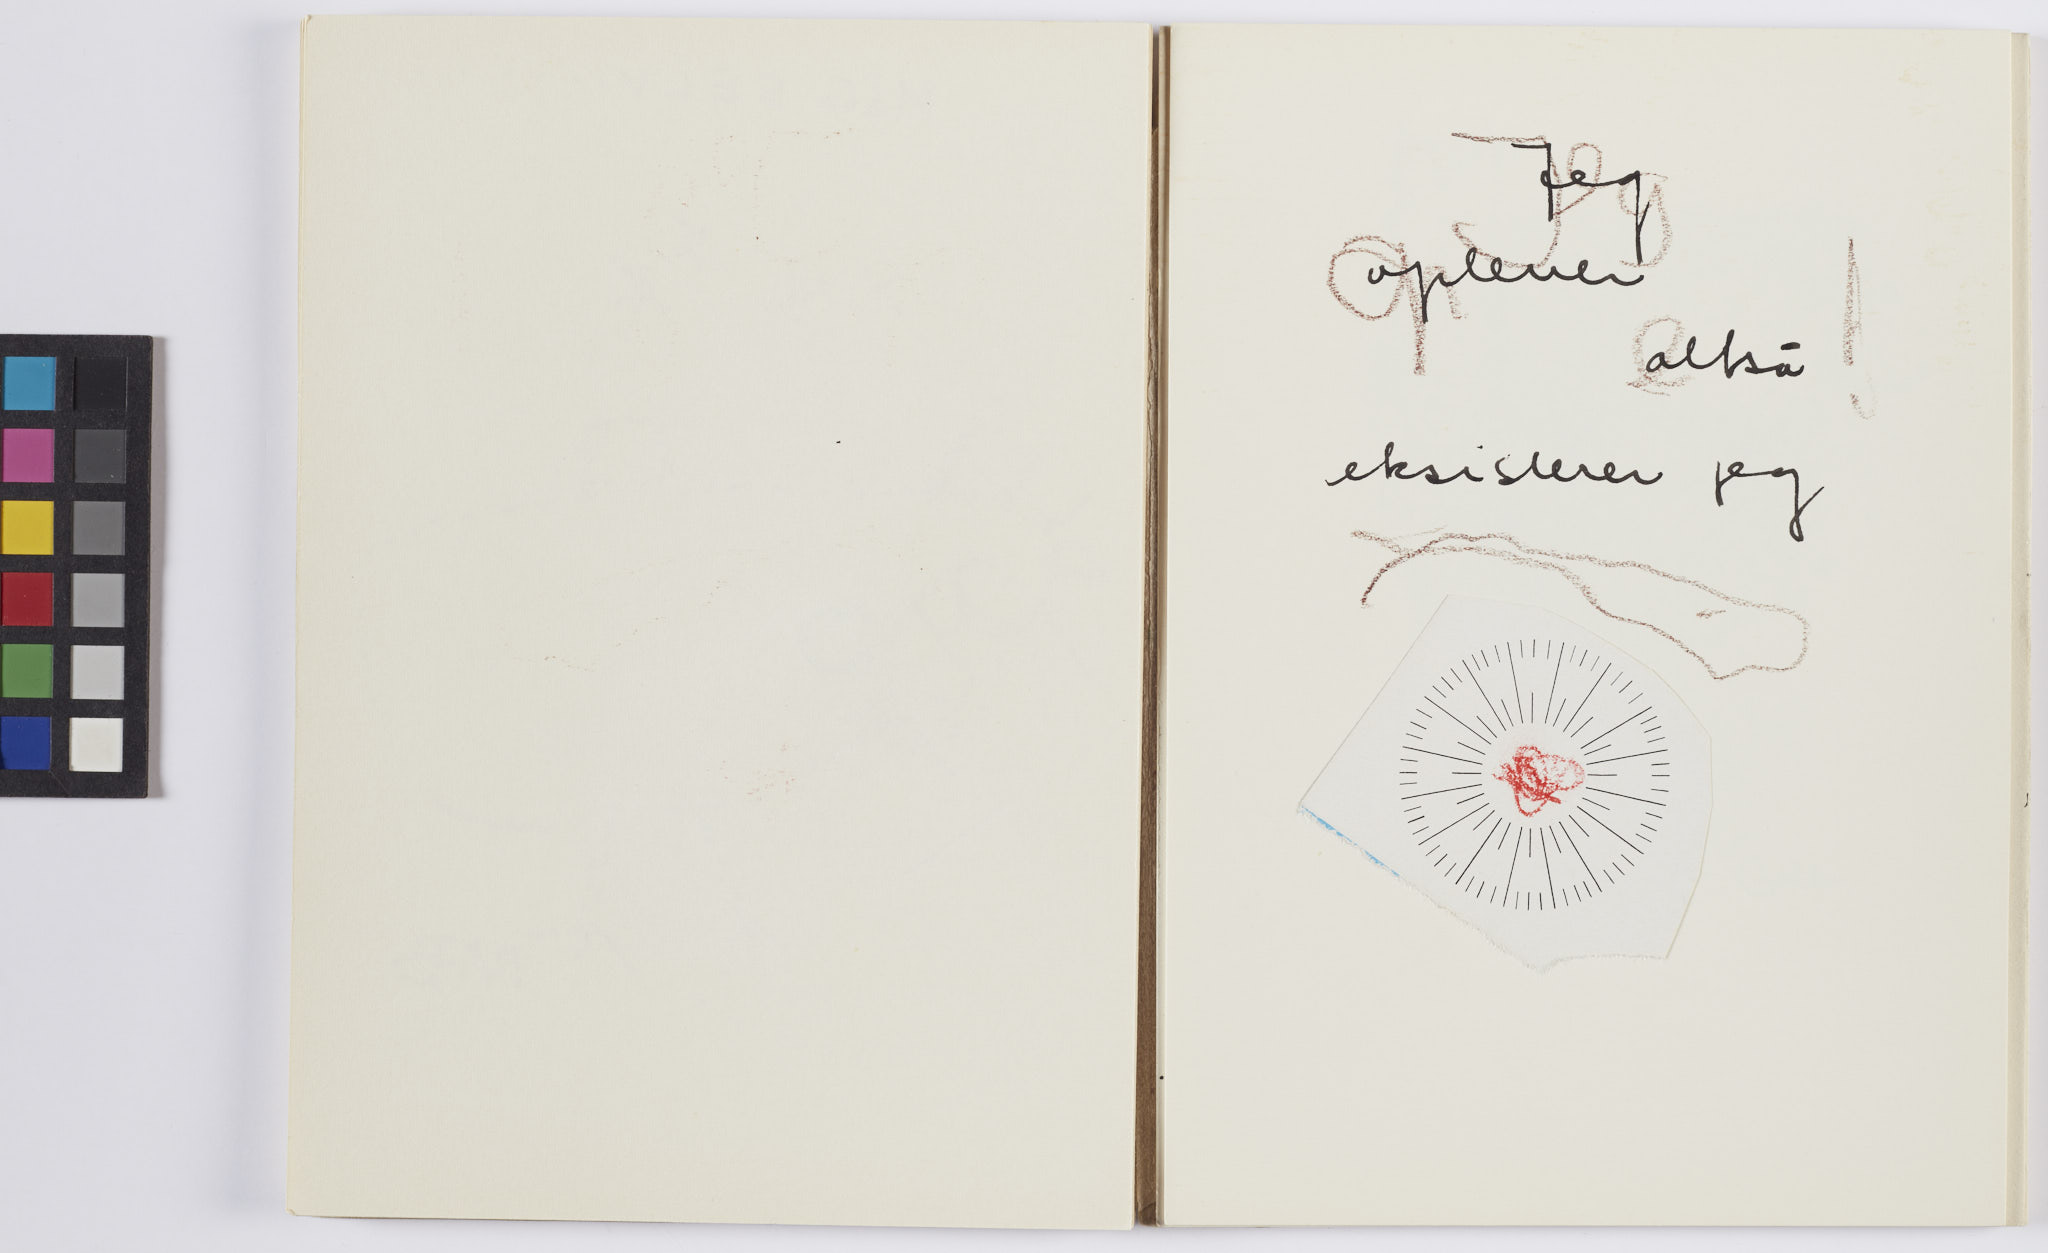 Jeg
oplever
altså
eksisterer jeg